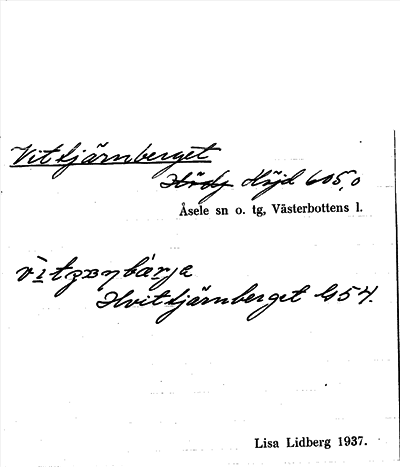 Vittjärnberget
Höjd Höjd 605,0
Åsele sn o. tg, Västerbottens l.
Hvittjärnberget G54.
Lisa Lidberg 1937.